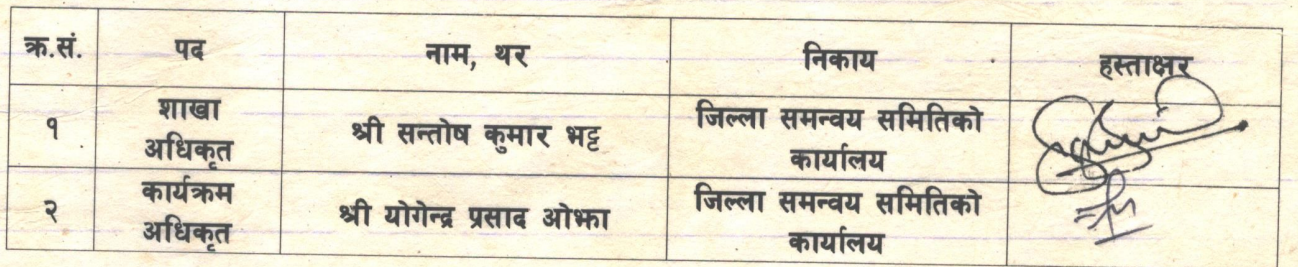 क्र.सं. पद नाम, थर निकाय हस्ताक्षर
१ शाखा अधिकृत श्री सन्तोष कुमार भट्ट जिल्ला समन्वय समितिको कार्यालय
२ कार्यक्रम अधिकृत श्री योगेन्द्र प्रसाद ओझा जिल्ला समन्वय समितिको कार्यालय